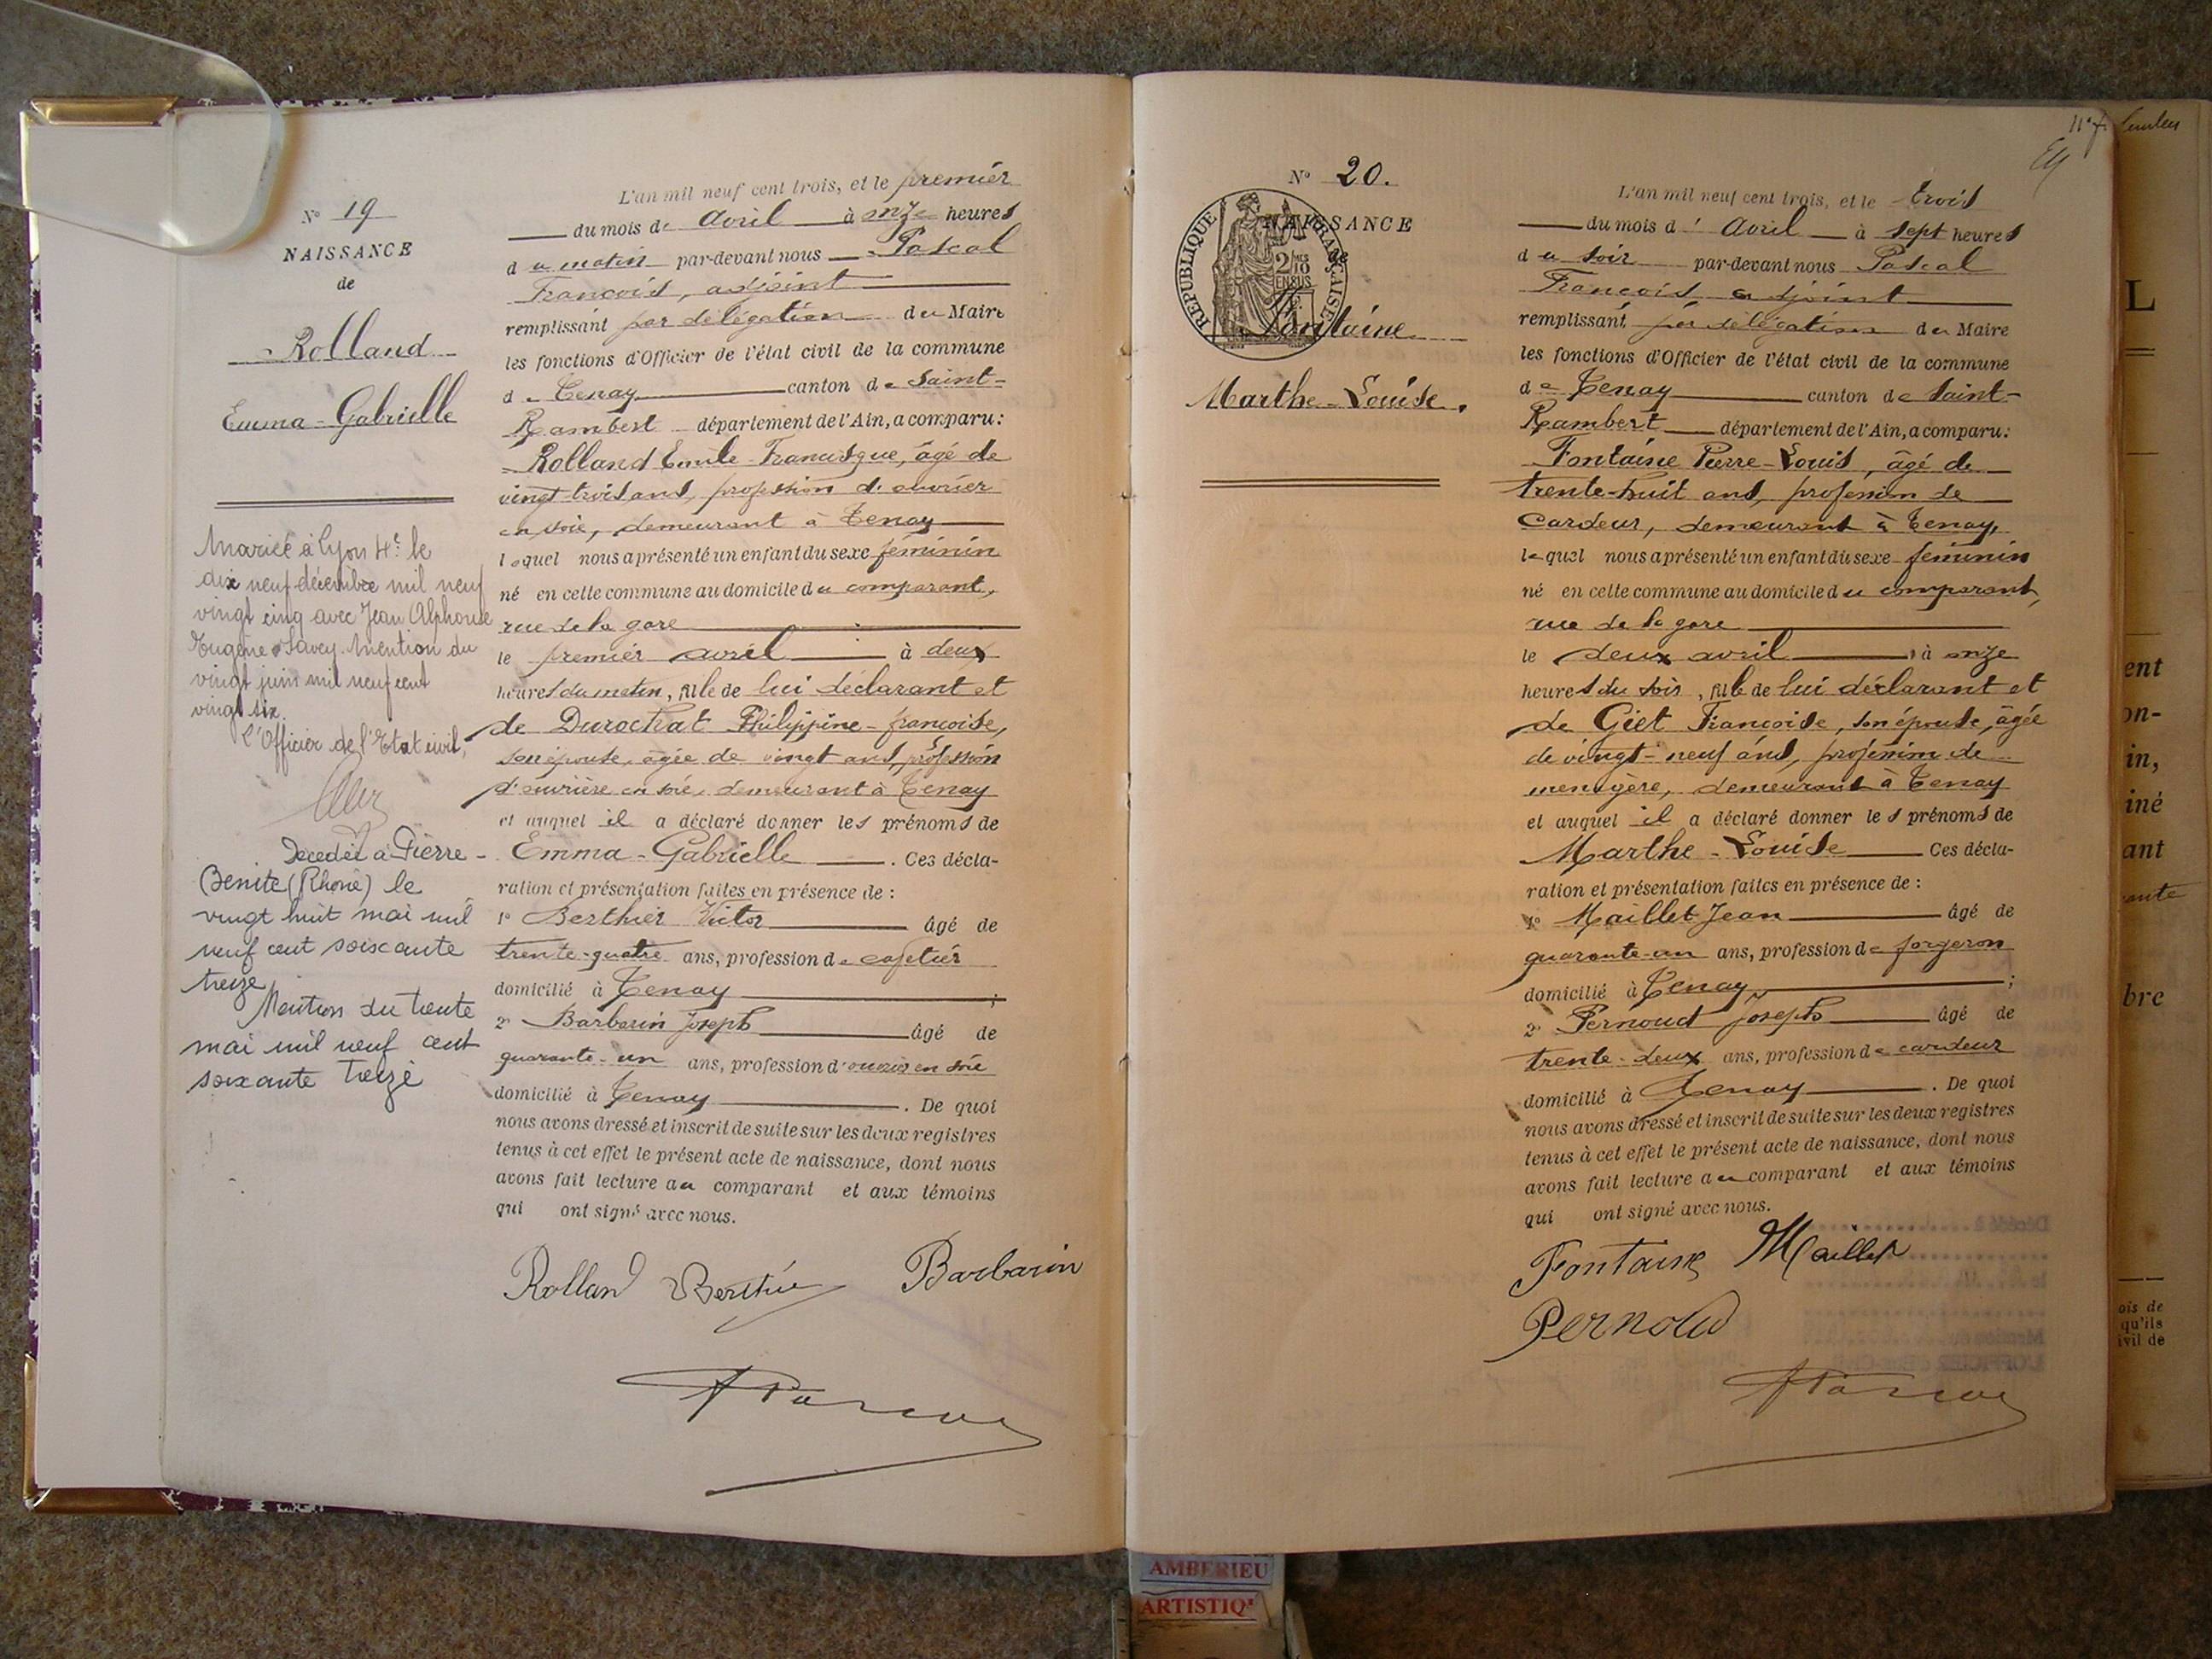 N° 19
NAISSANCE
de
Rolland
Emma-Gabrielle
Mariée à Lyon 4e le
dix neuf décembre mil neuf
vingt cinq avec Jean Alphonse
Eugène Savey. Mention du
vingt juin mil neuf cent
vingt six.
l'Officier de l'Etat civil,
Décédée à Pierre-
Bénite (Rhône) le
vingt huit mai mil
neuf cent soixante
treize
Mention du trente
mai mil neuf cent
soixante treize
L'an mil neuf cent trois, et le premier
du mois de avril à onze heures
du matin par-devant nous Pascal
François, adjoint
remplissant par délégation du Maire
les fonctions d'Officier de l'état civil de la commune
de Tenay canton de Saint-
Rambert département de l'Ain, a comparu:
Rolland Emile Francisque, âgé de
vingt-trois ans, profession d'ouvrier
en soie, demeurant à Tenay
lequel nous a présenté un enfant du sexe féminin
né en cette commune au domicile du comparant,
rue de la gare
le premier avril à deux
heures du matin, fille de lui déclarant et
de Durochat Philippine-françoise,
son épouse, âgée de vingt ans, profession
d'ouvrière en soie, demeurant à Tenay
et auquel il a déclaré donner les prénoms de
Emma-Gabrielle. Ces décla-
ration et présentation faites en présence de :
1° Berthier Victor âgé de
trente-quatre ans, profession de cafetier
domicilié à Tenay ;
2° Barbarin Joseph âgé de
quarante-un ans, profession d'ouvrier en soie
domicilié à Tenay. De quoi
nous avons dressé et inscrit de suite sur les deux registres
tenus à cet effet le présent acte de naissance, dont nous
avons fait lecture au comparant et aux témoins
qui ont signé avec nous.
Rolland Berthier Barbarin
N° 20.
NAISSANCE
de
REPUBLIQUE FRANÇAISE
2/10 EN SUS
Fontaine
Marthe-Louise.
L'an mil neuf cent trois, et le trois
du mois d'avril à sept heures
du soir par-devant nous Pascal
François, adjoint
remplissant par délégation du Maire
les fonctions d'Officier de l'état civil de la commune
de Tenay canton de Saint-
Rambert département de l'Ain, a comparu:
Fontaine Pierre-Louis, âgé de
trente-huit ans, profession de
cardeur, demeurant à Tenay,
lequel nous a présenté un enfant du sexe féminin
né en cette commune au domicile du comparant,
rue de la gare
le deux avril à onze
heures du soir, fille de lui déclarant et
de Giet Françoise, son épouse, âgée
de vingt-neuf ans, profession de
menagère, demeurant à Tenay
et auquel il a déclaré donner les prénoms de
Marthe-Louise Ces décla-
ration et présentation faites en présence de :
1° Maillet Jean âgé de
quarante-un ans, profession de forgeron
domicilié à Tenay ;
2° Pernoud Joseph âgé de
trente-deux ans, profession de cardeur
domicilié à Tenay. De quoi
nous avons dressé et inscrit de suite sur les deux registres
tenus à cet effet le présent acte de naissance, dont nous
avons fait lecture au comparant et aux témoins
qui ont signé avec nous.
Fontaine Maillet
Pernoud
L
ent
on-
in,
iné
ant
bre
ois de
qu'ils
ivil de
AMBERIEU
ARTISTIQ